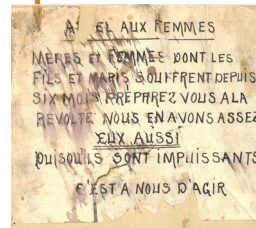 A   EL AUX FEMMES
MÈRES ET FEMMES DONT LES
FILS ET MARIS SOUFFRENT DEPUIS
SIX MOIS PRÉPAREZ VOUS A LA
REVOLTE NOUS EN AVONS ASSEZ
EUX AUSSI
PUISQU'ILS SONT IMPUISSANTS
C'EST A NOUS D'AGIR